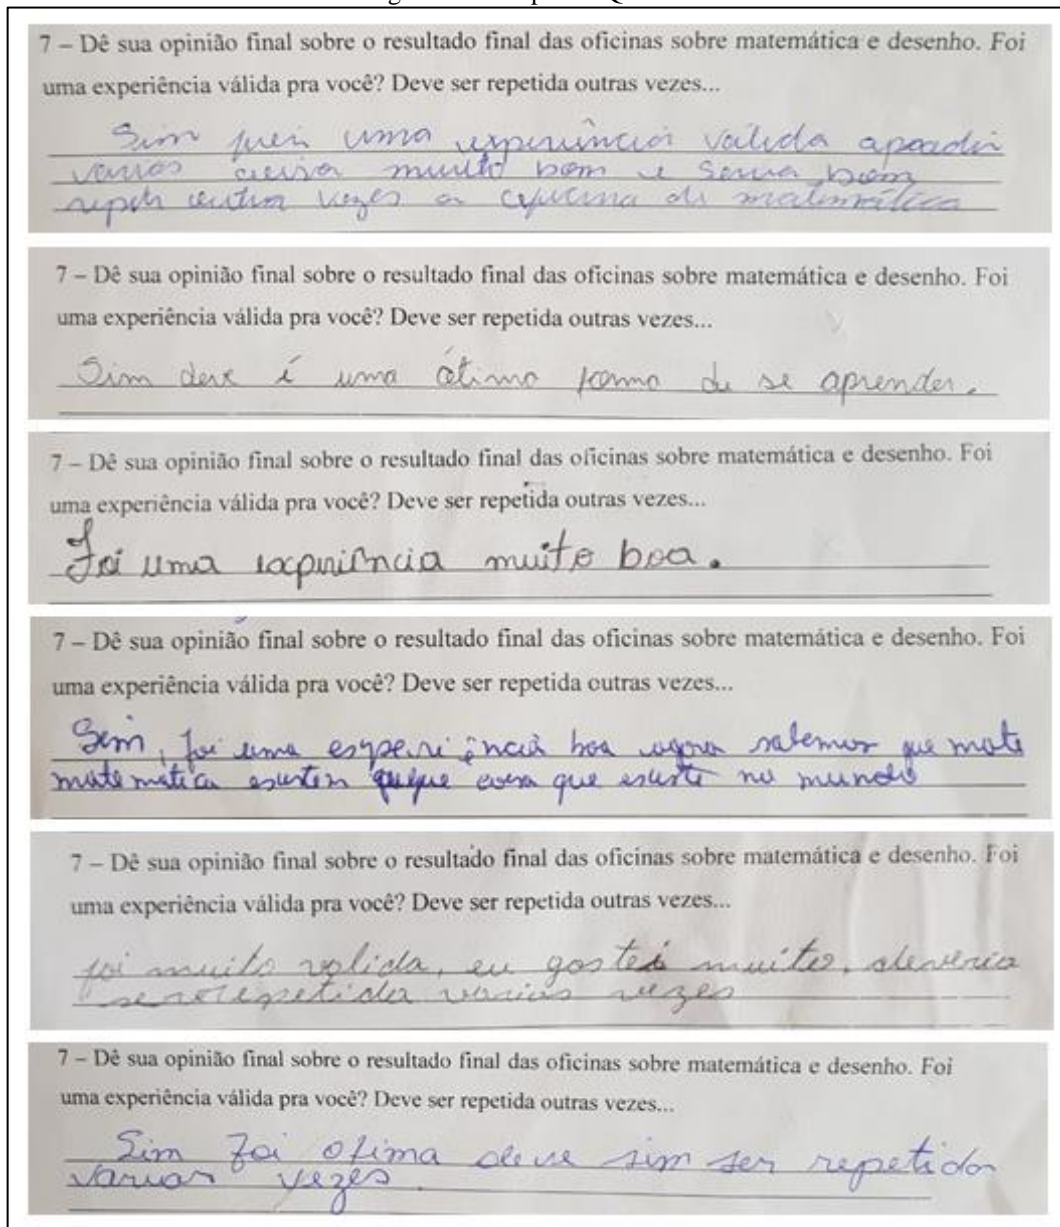 7 – Dê sua opinião final sobre o resultado final das oficinas sobre matemática e desenho. Foi
uma experiência válida pra você? Deve ser repetida outras vezes...
Sim foi uma experiência valida
varias muito bom e seria bom
vezes a de matemática
7 – Dê sua opinião final sobre o resultado final das oficinas sobre matemática e desenho. Foi
uma experiência válida pra você? Deve ser repetida outras vezes...
Sim deve é uma ótima forma de se aprender.
7 – Dê sua opinião final sobre o resultado final das oficinas sobre matemática e desenho. Foi
uma experiência válida pra você? Deve ser repetida outras vezes...
Foi uma muito boa.
7 – Dê sua opinião final sobre o resultado final das oficinas sobre matemática e desenho. Foi
uma experiência válida pra você? Deve ser repetida outras vezes...
Sim, foi uma boa agora sabemos que mate
matemática que no mundo
7 – Dê sua opinião final sobre o resultado final das oficinas sobre matemática e desenho. Foi
uma experiência válida pra você? Deve ser repetida outras vezes...
foi muito valida, eu gostei muito, deveria
ser repetida varias vezes
7 – Dê sua opinião final sobre o resultado final das oficinas sobre matemática e desenho. Foi
uma experiência válida pra você? Deve ser repetida outras vezes...
Sim Foi otima deve sim ser repetida
varias vezes.